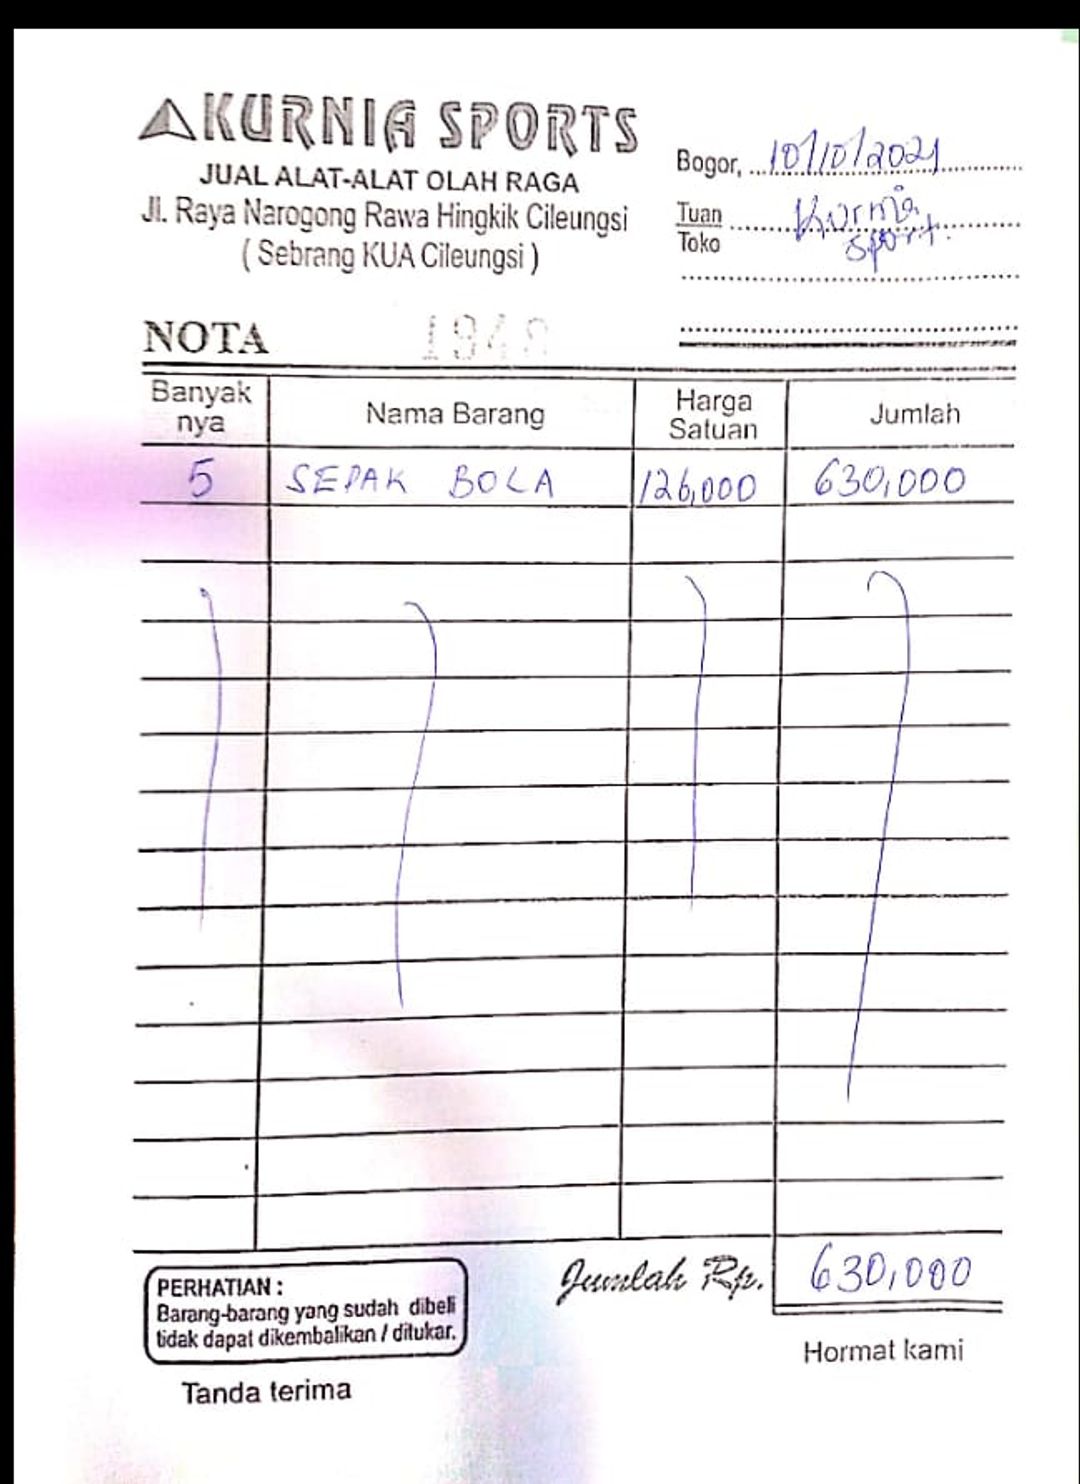 KURNIA SPORTS
JUAL ALAT-ALAT OLAH RAGA
Jl. Raya Narogong Rawa Hingkik Cileungsi
( Sebrang KUA Cileungsi )
Bogor, 10/10/2021
Tuan
Toko
Kurnia
Sport.
NOTA 1949
Banyak nya Nama Barang Harga Satuan Jumlah
5 SEPAK BOLA 126,000 630,000
Jumlah Rp. 630,000
PERHATIAN :
Barang-barang yang sudah dibeli
tidak dapat dikembalikan / ditukar.
Hormat kami
Tanda terima